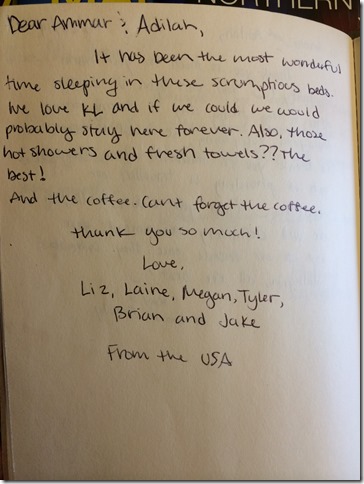 NORTHERN
Dear Ammar & Adilah,
It has been the most wonderful
time sleeping in these scrumptious beds.
We love KL and if we could we would
probably stay here forever. Also, those
hot showers and fresh towels?? The
best!
And the coffee. Cant forget the coffee.
Thank you so much!
Love,
Liz, Laine, Megan, Tyler,
Brian and Jake
From the USA